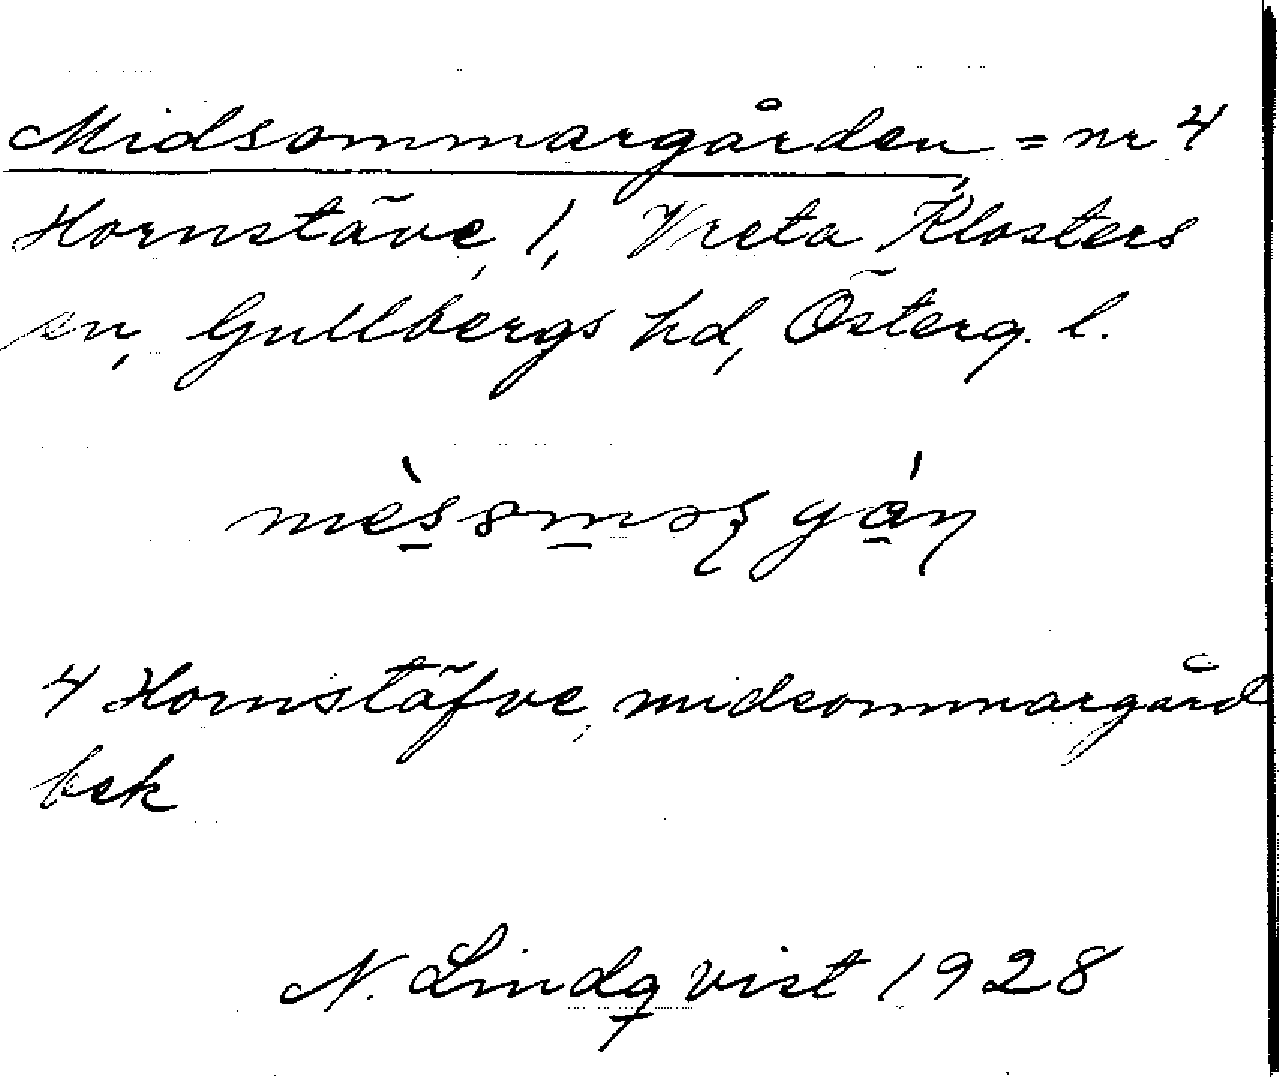 Midsommargården = nr 4
Hornstäve, 1, Vreta Klosters
sn, Gullbergs hd, Österg. l.
4 Hornstäfve, midsommargård
bek
N. Lindqvist 1928